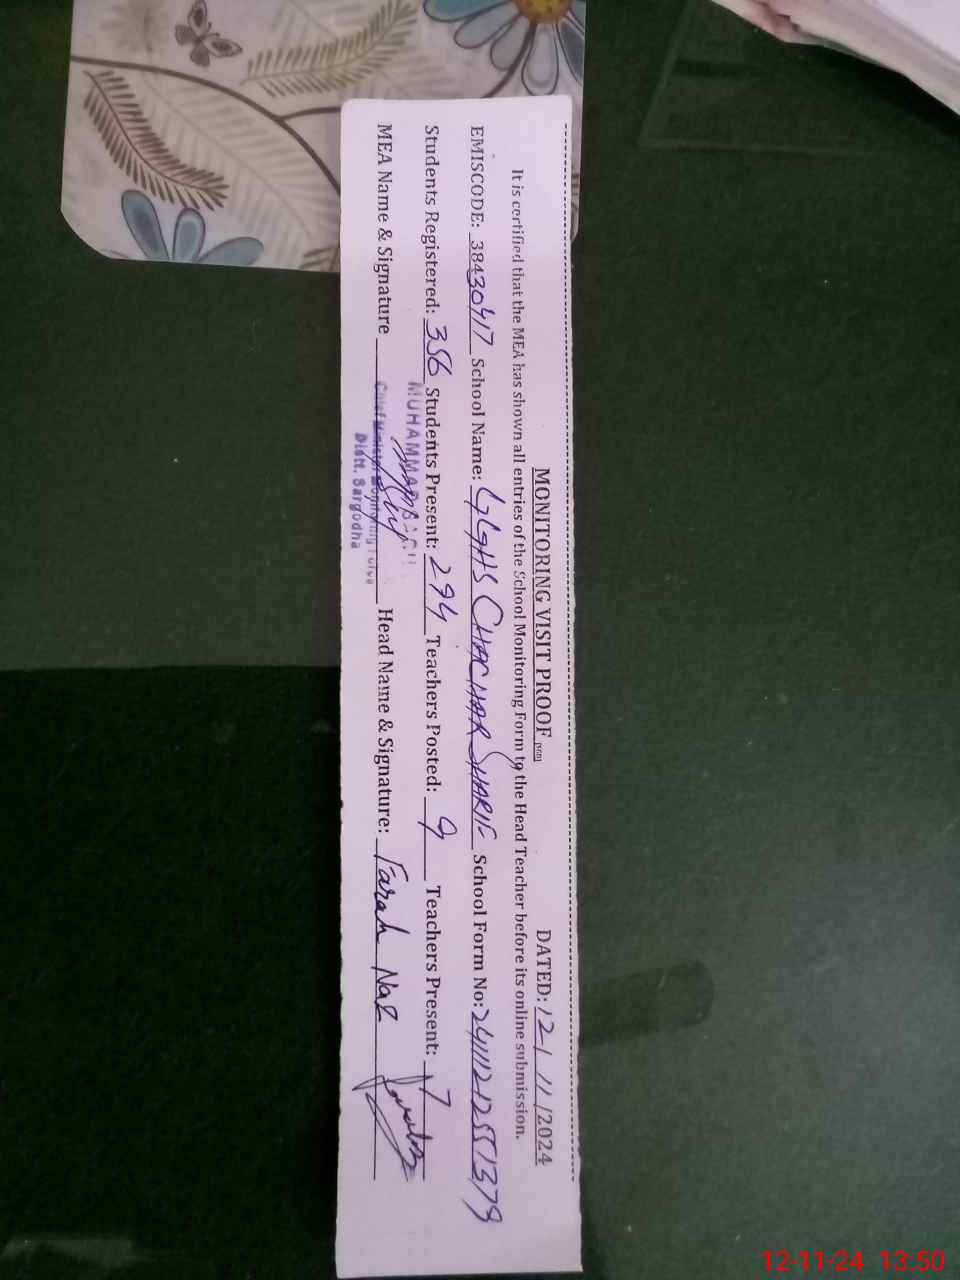 MONITORING VISIT PROOF DATED: 12-/ 11 /2024
It is certified that the MEA has shown all entries of the School Monitoring Form to the Head Teacher before its online submission.
EMISCODE: 38430417 School Name: GGHS CHACHAR SHARIF School Form No:
Students Registered: 356 Students Present: 294 Teachers Posted: 9 Teachers Present: 7
MEA Name & Signature Head Name & Signature: Farah Naz
MUHAMMAD
Chief Minister Monitoring Force
Distt. Sargodha
12-11-24 13:50